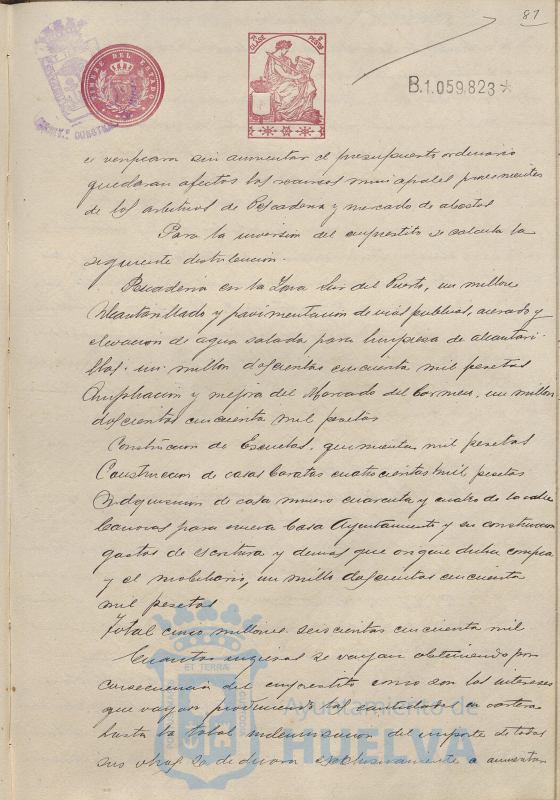 81
TIMBRE DEL ESTADO
CLASE
PESETAS
B.1.059.823*
se verificara sin aumentar el presupuesto ordinario
quedaran afectos los recursos municipales procedentes
de los arbitrios de Pescaderia y mercado de abastos
Para la inversion del emprestito se calcula la
siguiente distribucion.
Pescaderia en la Zona Sur del Puerto, un millon
Alcantarillado y pavimentacion de vias publicas, acerado y
elevacion de agua salada para limpiesa de alcantari-
llas. un millon doscientas cincuenta mil pesetas
Ampliacion y mejora del Mercado del Carmen, un millon
doscientas cincuenta mil pesetas
Construccion de Escuelas, quinientas mil pesetas
Construccion de casas baratas cuatrocientas mil pesetas
Adquisicion de casa numero cuarenta y cuatro de la calle
Canovas para nueva Casa Ayuntamiento y su construccion
gastos de escritura y demas que origue dicha compra
y el mobiliario, un millon doscientas cincuenta
mil pesetas
Total cinco millones seiscientas cincuenta mil
Cuantos ingresos se vayan obteniendo por
consecuencia del emprestito como son los intereses
que vayan produciendo las cantidades en cartera
hasta la total del importe de todas
sus obras se dedicara exclusivamente a aumentar
ET TERRAE
Ayuntamiento de
HUELVA